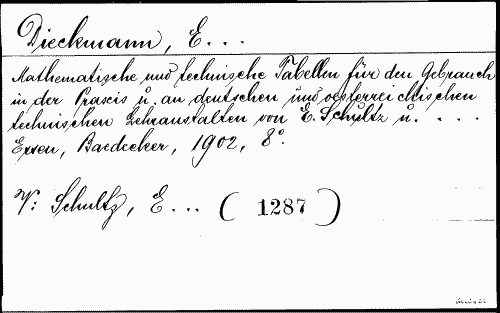 Dieckmann, E...
Mathematische und technische Tabellen für den Gebrauch
in der Praxis u. an deutschen und oesterreichischen
technischen Lehranstalten von E. Schultz u. . . .
Essen, Baedecker, 1902, 8°.
V: Schultz, E... (1287)